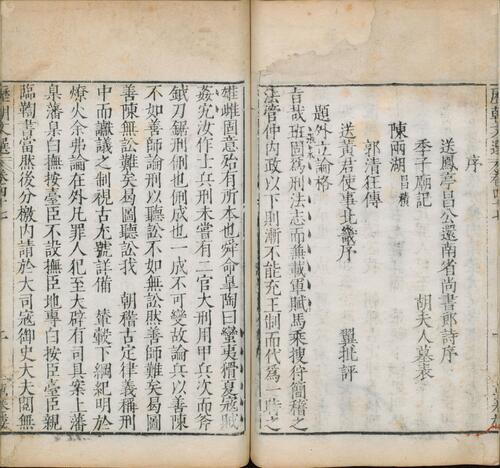 序
送鳳亭昌公還南省尚書郎詩序
季子廟記
胡夫人墓表
陳兩湖 昌積
郭清狂傳
送黃君使事北畿序
翼批評
題外立論格
言哉班固爲刑法志而無載軍賦馬乘搜狩簡稽之
法管仲內政以下則漸不能充王制而代爲一時之
雄雌固意殆有所本也舜命皐陶曰蠻夷猾夏寇賊
姦宄汝作士兵刑未嘗有二官大刑用甲兵次而斧
鉞刀鋸刑例也例成也一成不可變故論兵以善陳
不如善師論刑以聽訟不如無訟然善師難矣曷圖
善陳無訟難矣曷圖聽訟我 朝稽古定律義稱刑
中而讞議之制視古尤號詳備 輦轂下綱紀明於
燎火余弗論在外凡罪人犯至大辟有司具案上藩
臬藩臬白撫按臺臣不設撫臣地專白按臣臺臣親
臨鞫書當然後分檄內請於大司寇御史大夫閱無